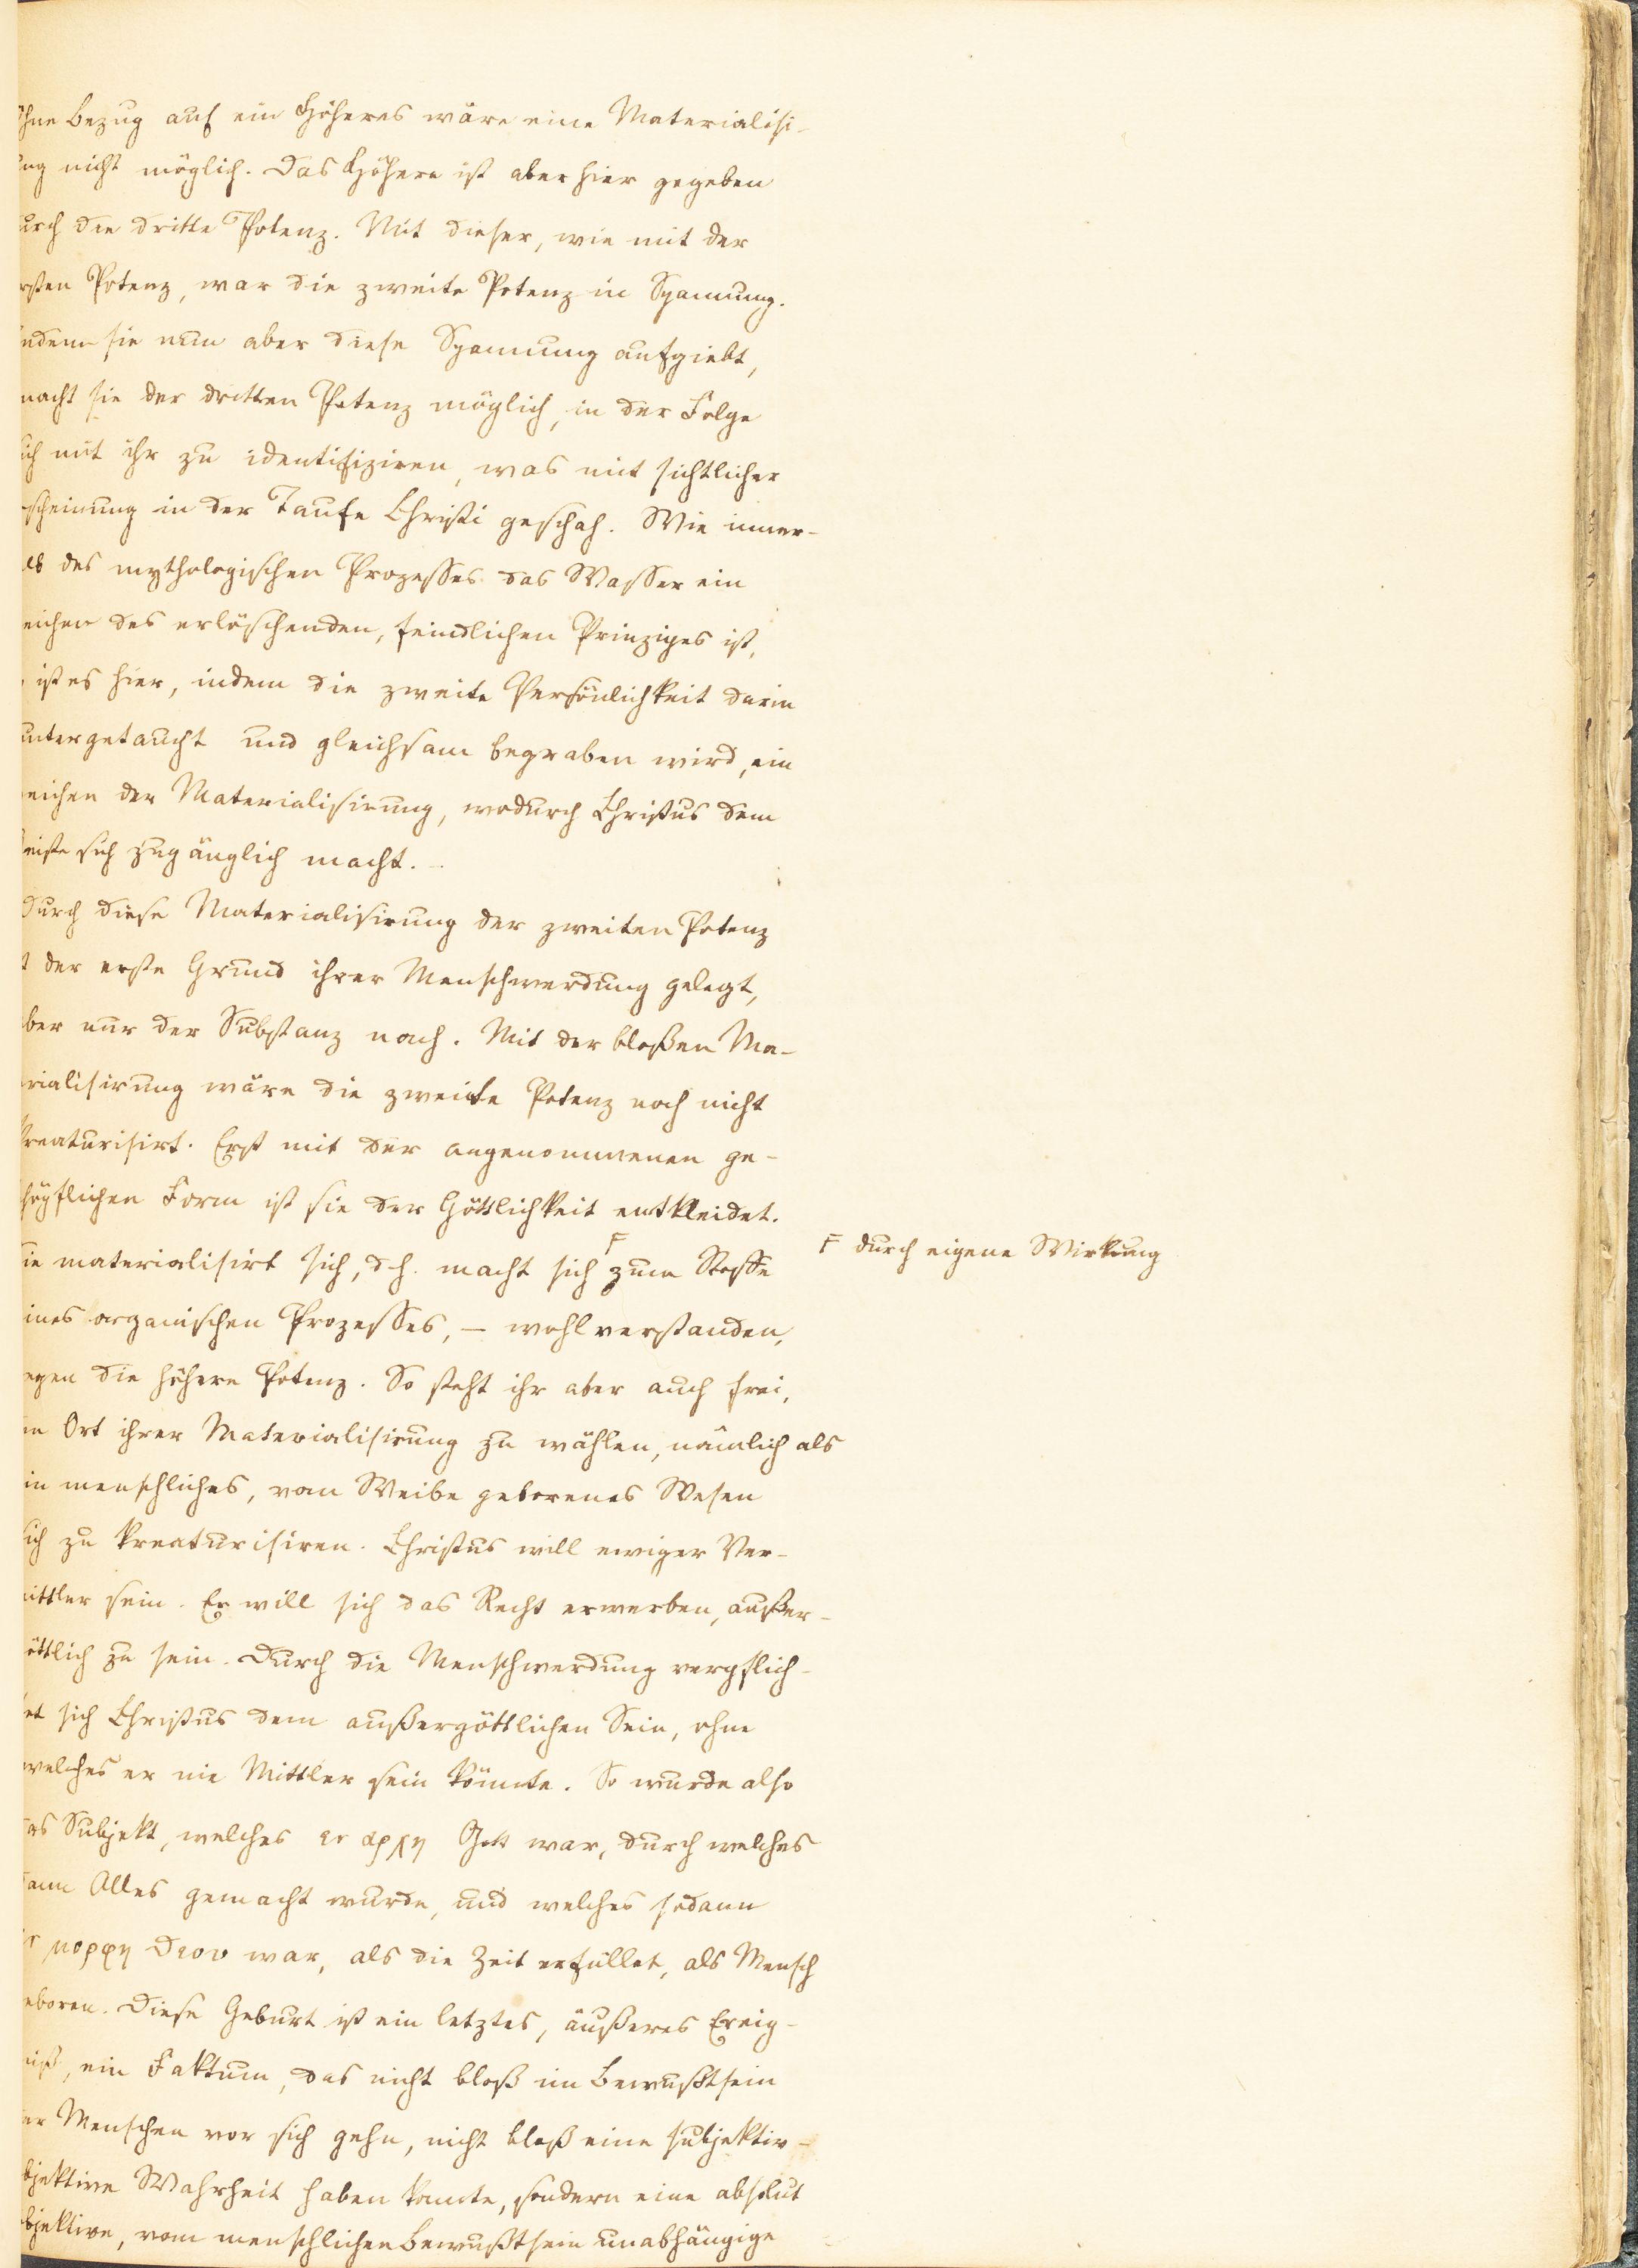 ohne Bezug auf ein Höheres wäre eine Materialisi-
ung nicht möglich. Das Höhere ist aber hier gegeben
urch die dritte Potenz. Mit dieser, wie mit der
rsten Potenz, war die zweite Potenz in Spannung.
ndem sie nun aber diese Spannung aufgiebt,
macht sie der dritten Potenz möglich, in der Folge
ich mit ihr zu identifiziren, was mit sichtlicher
scheinung in der Taufe Christi geschah. Wie inner-
lb des mythologischen Prozesses das Wasser ein
eichen des erlöschenden, feindlichen Prinzipes ist,
ist es hier, indem die zweite Persönlichkeit darin
untergetaucht und gleichsam begraben wird, ein
eichen der Materialisirung, wodurch Christus dem
eiste sich zugänglich macht. –
Durch diese Materialisirung der zweiten Potenz
t der erste Grund ihrer Menschwerdung gelegt,
ber nur der Substanz nach. Mit der bloßen Ma-
rialisirung wäre die zweite Potenz noch nicht
kreaturisirt. Erst mit der angenommenen ge-
höpflichen Form ist sie der Göttlichkeit entkleidet.
ie materialisirt sich, d. h. macht sich F zum Stoffe
F durch eigene Wirkung
ines organischen Prozesses, – wohlverstanden,
egen die höhere Potenz. So steht ihr aber auch frei,
n Ort ihrer Materialisirung zu wählen, nämlich als
in menschliches, vom Weibe geborenes Wesen
ich zu kreaturisiren. Christus will ewiger Ver-
ittler sein. Er will sich das Recht erwerben, außer-
öttlich zu sein. Durch die Menschwerdung verpflich-
et sich Christus dem außergöttlichen Sein, ohne
welches er nie Mittler sein könnte. So wurde also
as Subjekt, welches εν αρχη Gott war, durch welches
ann Alles gemacht wurde, und welches sodann
ν μορφη Θεου war, als die Zeit erfüllet, als Mensch
eboren. Diese Geburt ist ein letztes, äußeres Ereig-
niß, ein Faktum, das nicht bloß im Bewußtsein
er Menschen vor sich gehn, nicht bloß eine subjektiv-
bjektive Wahrheit haben konnte, sondern eine absolut
bjektive, vom menschlichen Bewußtsein unabhängige